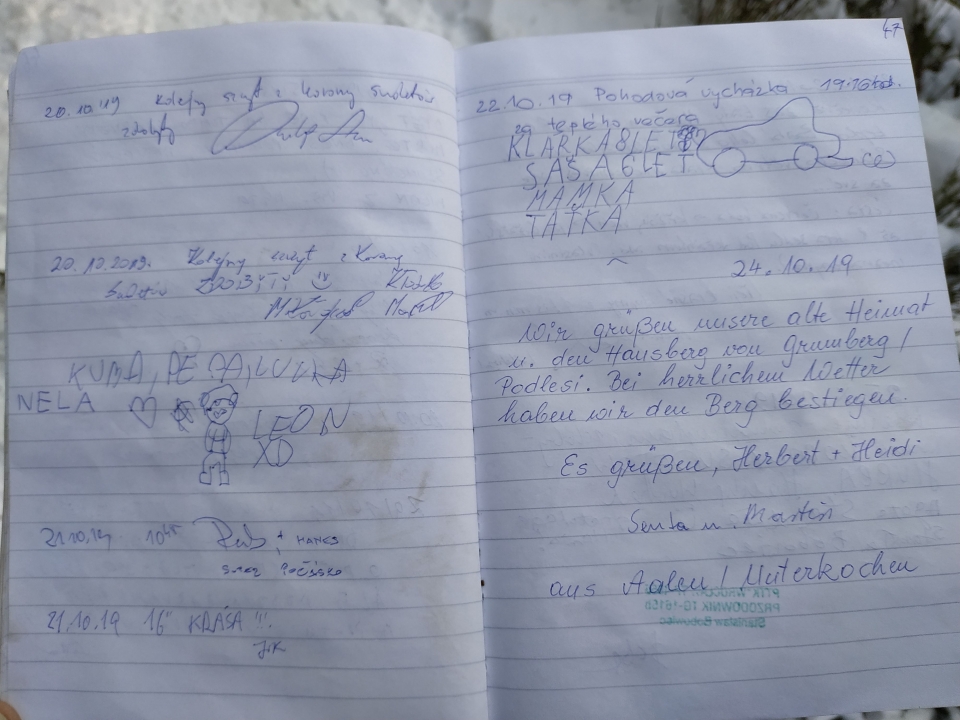 20.10.19 Kolejny szczyt z korony Sudetów
zdobyty
20.10.2019. Kolejny szczyt z Korony
Sudetów
KUBA, PEPA, LUCKA
NELA
LEON
XD
21.10.19 10⁴⁵ + HANES
směr
21.10.19 16 KRÁSA !!!
JK
47
22.10.19 Pohodová vycházka
za teplého večera
KLÁRKA 8 LET
SÁŠA 6 LET
MAMKA
TAŤKA
24.10.19
Wir grüßen unsere alte Heimat
u. den Hausberg von Grumberg /
Podlesi. Bei herrlichem Wetter
haben wir den Berg bestiegen.
Es grüßen, Herbert + Heidi
Senta u. Martin
aus Aalen / Unterkochen
PTTK WROCŁAW
PRZODOWNIK TG-1615b
Stanisław